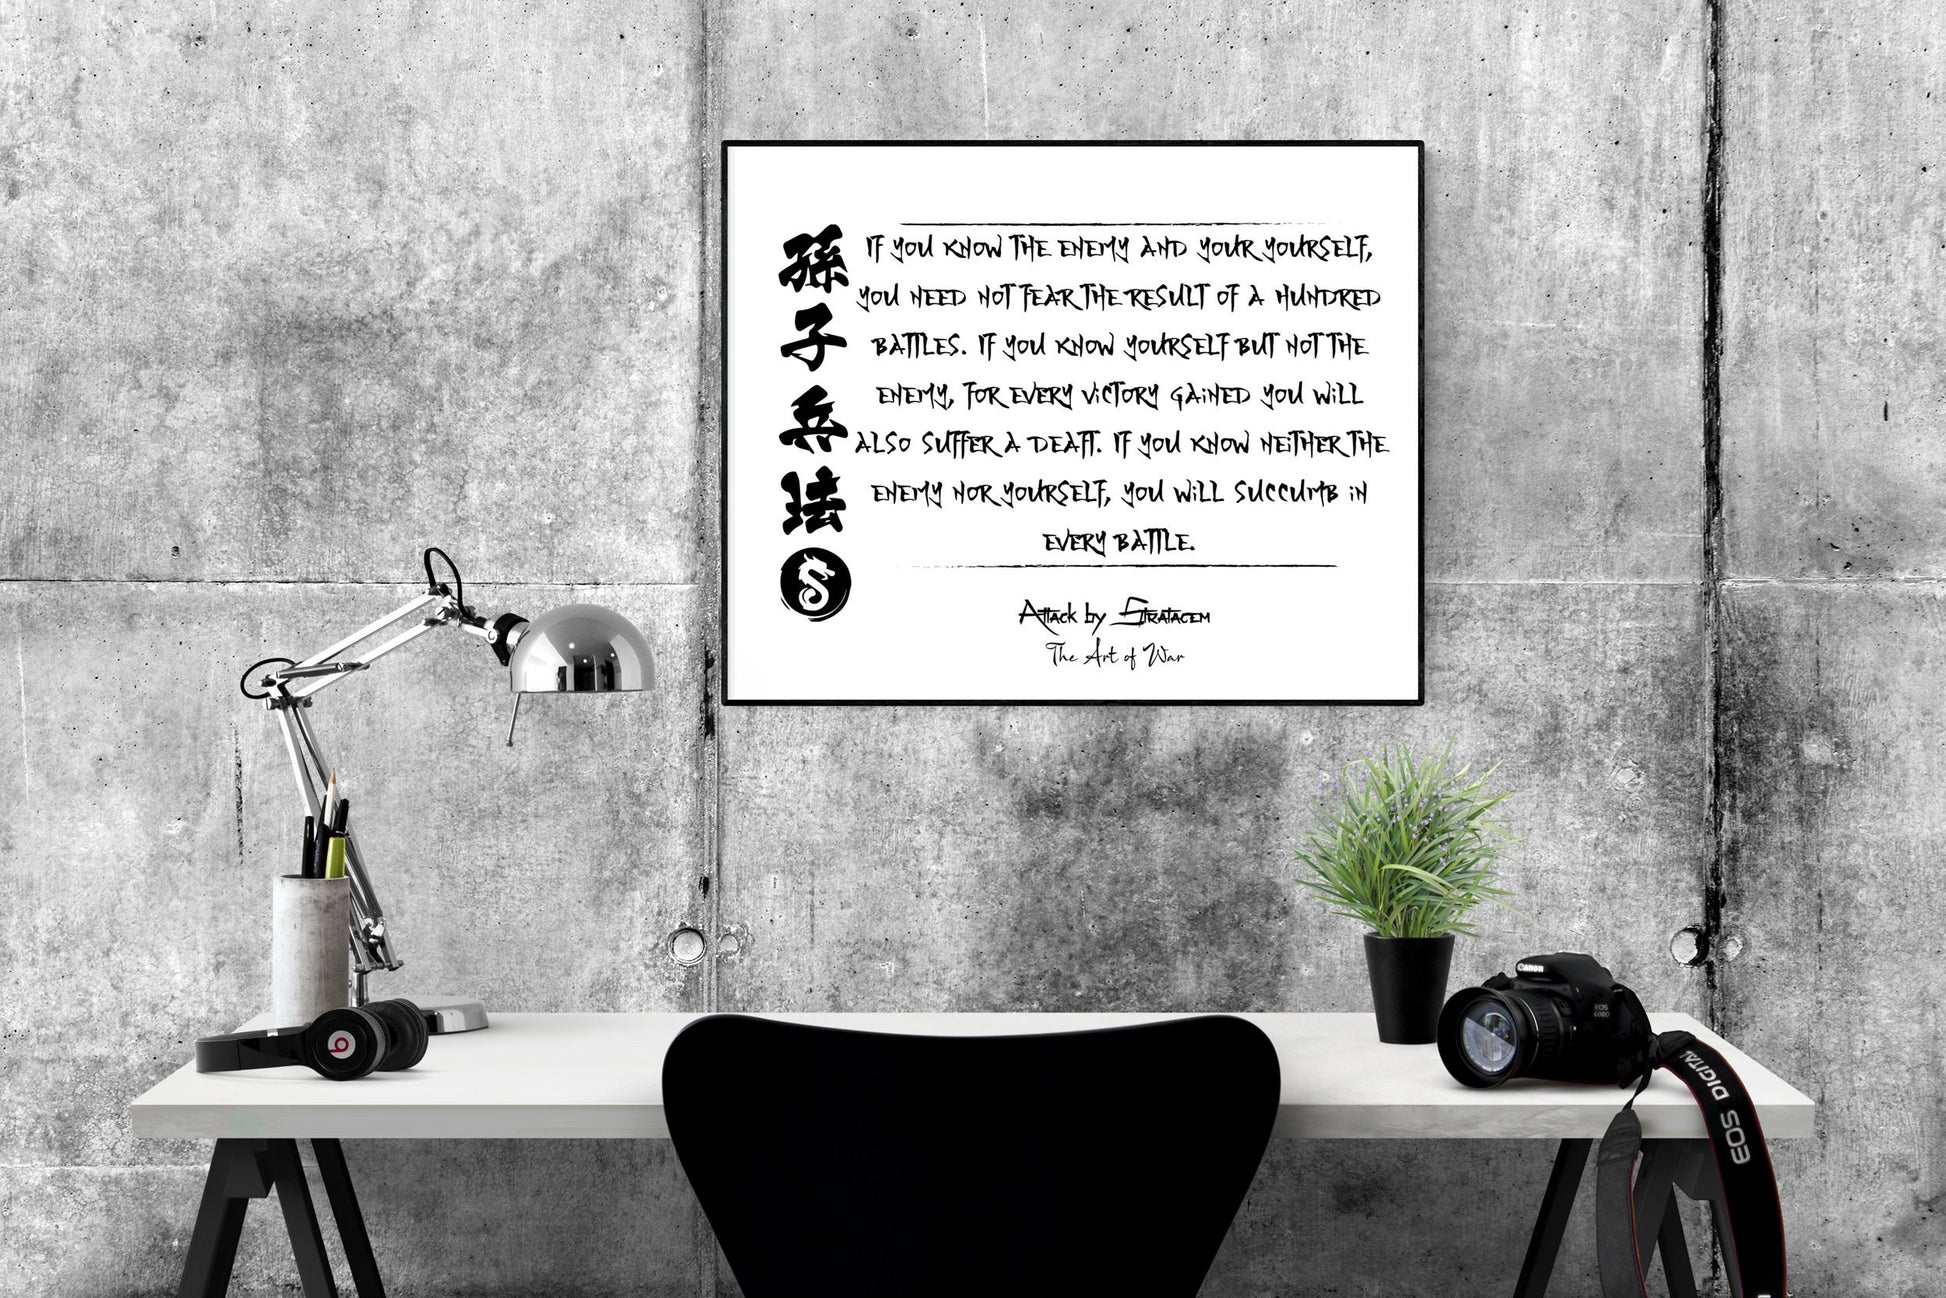 孫子兵法
IF YOU KNOW THE ENEMY AND YOUR YOURSELF,
YOU NEED NOT FEAR THE RESULT OF A HUNDRED
BATTLES. IF YOU KNOW YOURSELF BUT NOT THE
ENEMY, FOR EVERY VICTORY GAINED YOU WILL
ALSO SUFFER A DEAFT. IF YOU KNOW NEITHER THE
ENEMY NOR YOURSELF, YOU WILL SUCCUMB IN
EVERY BATTLE.
Attack by Stratagem
The Art of War
Canon
EOS
600D
EOS DIGITAL